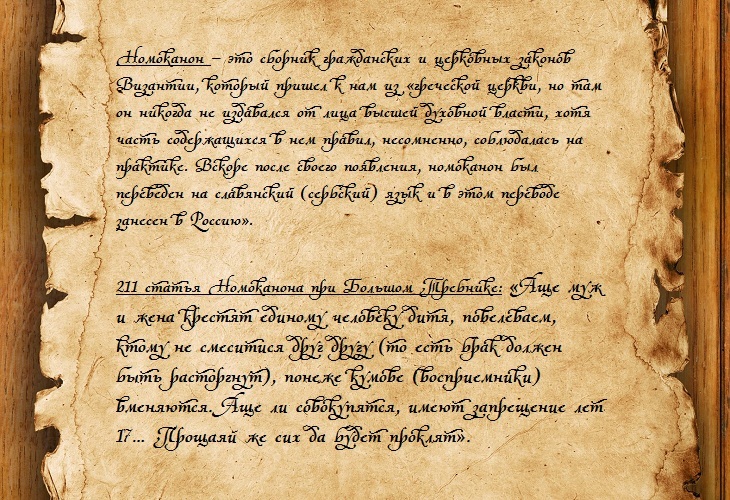 Номоканон – это сборник гражданских и церковных законов
Византии, который пришел к нам из «греческой церкви, но там
он никогда не издавался от лица высшей духовной власти, хотя
часть содержащихся в нем правил, несомненно, соблюдалась на
практике. Вскоре после своего появления, номоканон был
переведен на славянский (сербский) язык и в этом переводе
занесен в Россию».
211 статья Номоканона при Большом Требнике: «Аще муж
и жена крестят единому человеку дитя, повелеваем,
ктому не смеситися друг другу (то есть брак должен
быть расторгнут), понеже кумове (восприемники)
вменяются. Аще ли совокупятся, имеют запрещение лет
17... Прощаяй же сих да будет проклят».